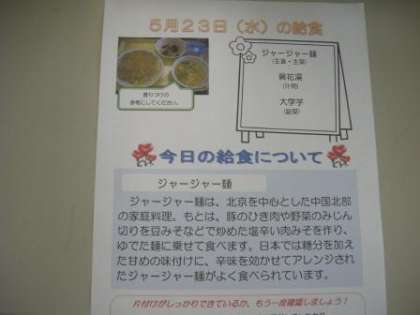 5月23日(水)の給食
ジャージャー麺
(主食・主菜)
(汁物)
大学芋
(副菜)
盛りつけの
参考にしてください。
今日の給食について
ジャージャー麺
ジャージャー麺は、北京を中心とした中国北部
の家庭料理。もとは、豚のひき肉や野菜のみじん
切りを豆みそなどで炒めた塩辛い肉みそを作り、
ゆでた麺に乗せて食べます。日本では糖分を加え
た甘めの味付けに、辛味を効かせてアレンジされ
たジャージャー麺がよく食べられています。
片付けがしっかりできているか、もう一度確認しましょう!